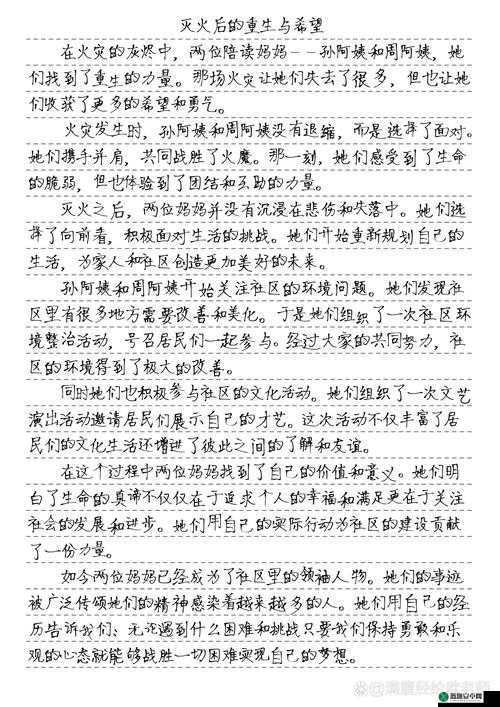 灭火后的重生与希望
在火灾的灰烬中，两位陪读妈妈--孙阿姨和周阿姨，她
们找到了重生的力量。那场火灾让她们失去了很多，但也让她
们收获了更多的希望和勇气。
火灾发生时，孙阿姨和周阿姨没有退缩，而是选择了面对。
她们携手并肩，共同战胜了火魔。那一刻，她们感受到了生命
的脆弱，但也体验到了团结和互助的力量。
灭火之后，两位妈妈并没有沉浸在悲伤和失落中。她们选
择了向前看，积极面对生活的挑战。她们开始重新规划自己的
生活，为家人和社区创造更加美好的未来。
孙阿姨和周阿姨开始关注社区的环境问题。她们发现社
区里有很多地方需要改善和美化。于是她们组织了一次社区环
境整治活动，号召居民们一起参与。经过大家的共同努力，社
区的环境得到了极大的改善。
同时她们也积极参与社区的文化活动。她们组织了一次文艺
演出活动邀请居民们展示自己的才艺。这次活动不仅丰富了居
民们的文化生活还增进了彼此之间的了解和友谊。
在这个过程中两位妈妈找到了自己的价值和意义。她们明
白了生命的真谛不仅仅在于追求个人的幸福和满足更在于关注
社会的发展和进步。她们用自己的实际行动为社区的建设贡献
了一份力量。
如今两位妈妈已经成为了社区里的领袖人物。她们的事迹
被广泛传颂她们的精神感染着越来越多的人。她们用自己的经
历告诉我们：无论遇到什么困难和挑战只要我们保持勇敢和乐
观的心态就能够战胜一切困难实现自己的梦想。